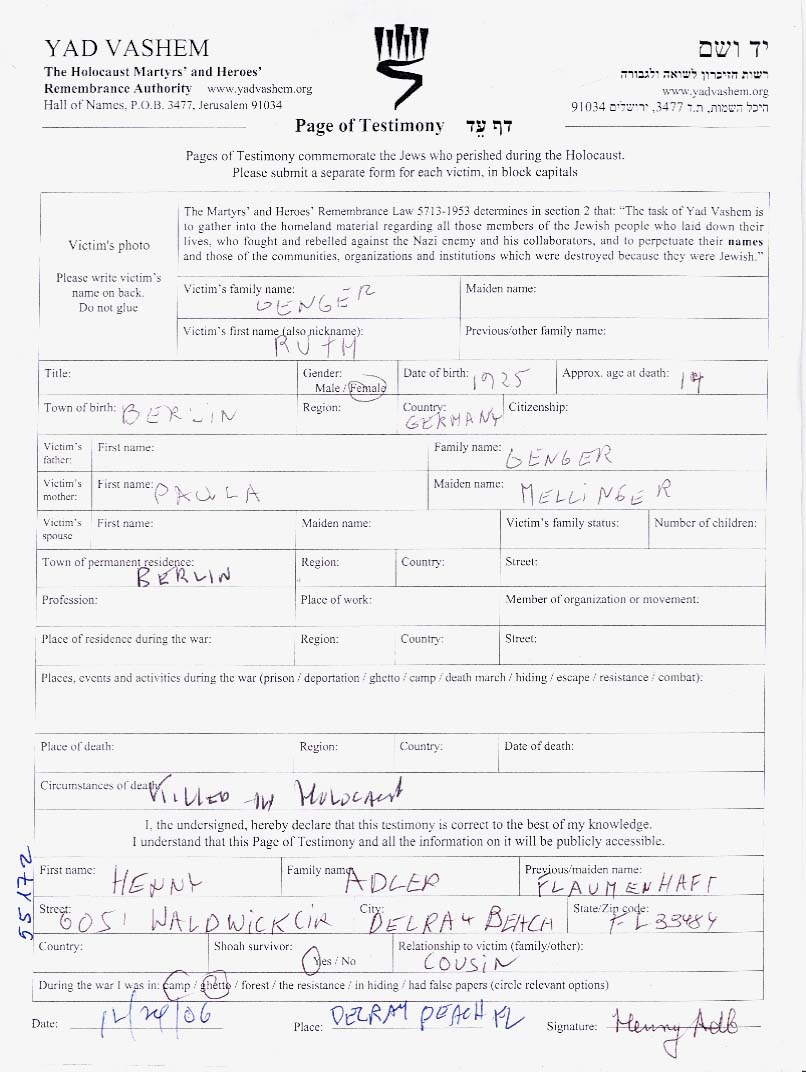 YAD VASHEM
The Holocaust Martyrs' and Heroes'
Remembrance Authority www.yadvashem.org
Hall of Names, P.O.B. 3477, Jerusalem 91034
יד ושם
רשות הזיכרון לשואה ולגבורה
www.yadvashem.org
היכל השמות, ת.ד 3477, ירושלים 91034
Page of Testimony דף עֵד
Pages of Testimony commemorate the Jews who perished during the Holocaust.
Please submit a separate form for each victim, in block capitals
Victim's photo
Please write victim's
name on back.
Do not glue
The Martyrs' and Heroes' Remembrance Law 5713-1953 determines in section 2 that: "The task of Yad Vashem is
to gather into the homeland material regarding all those members of the Jewish people who laid down their
lives, who fought and rebelled against the Nazi enemy and his collaborators, and to perpetuate their names
and those of the communities, organizations and institutions which were destroyed because they were Jewish."
Victim's family name: GENGER Maiden name:
Victim's first name (also nickname): RUTH Previous/other family name:
Title: Gender: Male / Female Date of birth: 1925 Approx. age at death: 17
Town of birth: BERLIN Region: Country: GERMANY Citizenship:
Victim's father: First name: Family name: GENGER
Victim's mother: First name: PAULA Maiden name: MELLINGER
Victim's spouse First name: Maiden name: Victim's family status: Number of children:
Town of permanent residence: BERLIN Region: Country: Street:
Profession: Place of work: Member of organization or movement:
Place of residence during the war: Region: Country: Street:
Places, events and activities during the war (prison / deportation / ghetto / camp / death march / hiding / escape / resistance / combat):
Place of death: Region: Country: Date of death:
Circumstances of death: KILLED IN HOLOCAUST
I, the undersigned, hereby declare that this testimony is correct to the best of my knowledge.
I understand that this Page of Testimony and all the information on it will be publicly accessible.
55172
First name: HENNY Family name: ADLER Previous/maiden name: FLAUMENHAFT
Street: 6051 WALDWICK CIR City: DELRAY BEACH State/Zip code: FL 33484
Country: Shoah survivor: Yes / No Relationship to victim (family/other): COUSIN
During the war I was in: camp / ghetto / forest / the resistance / in hiding / had false papers (circle relevant options)
Date: Place: DELRAY BEACH FL Signature: Henny Adler